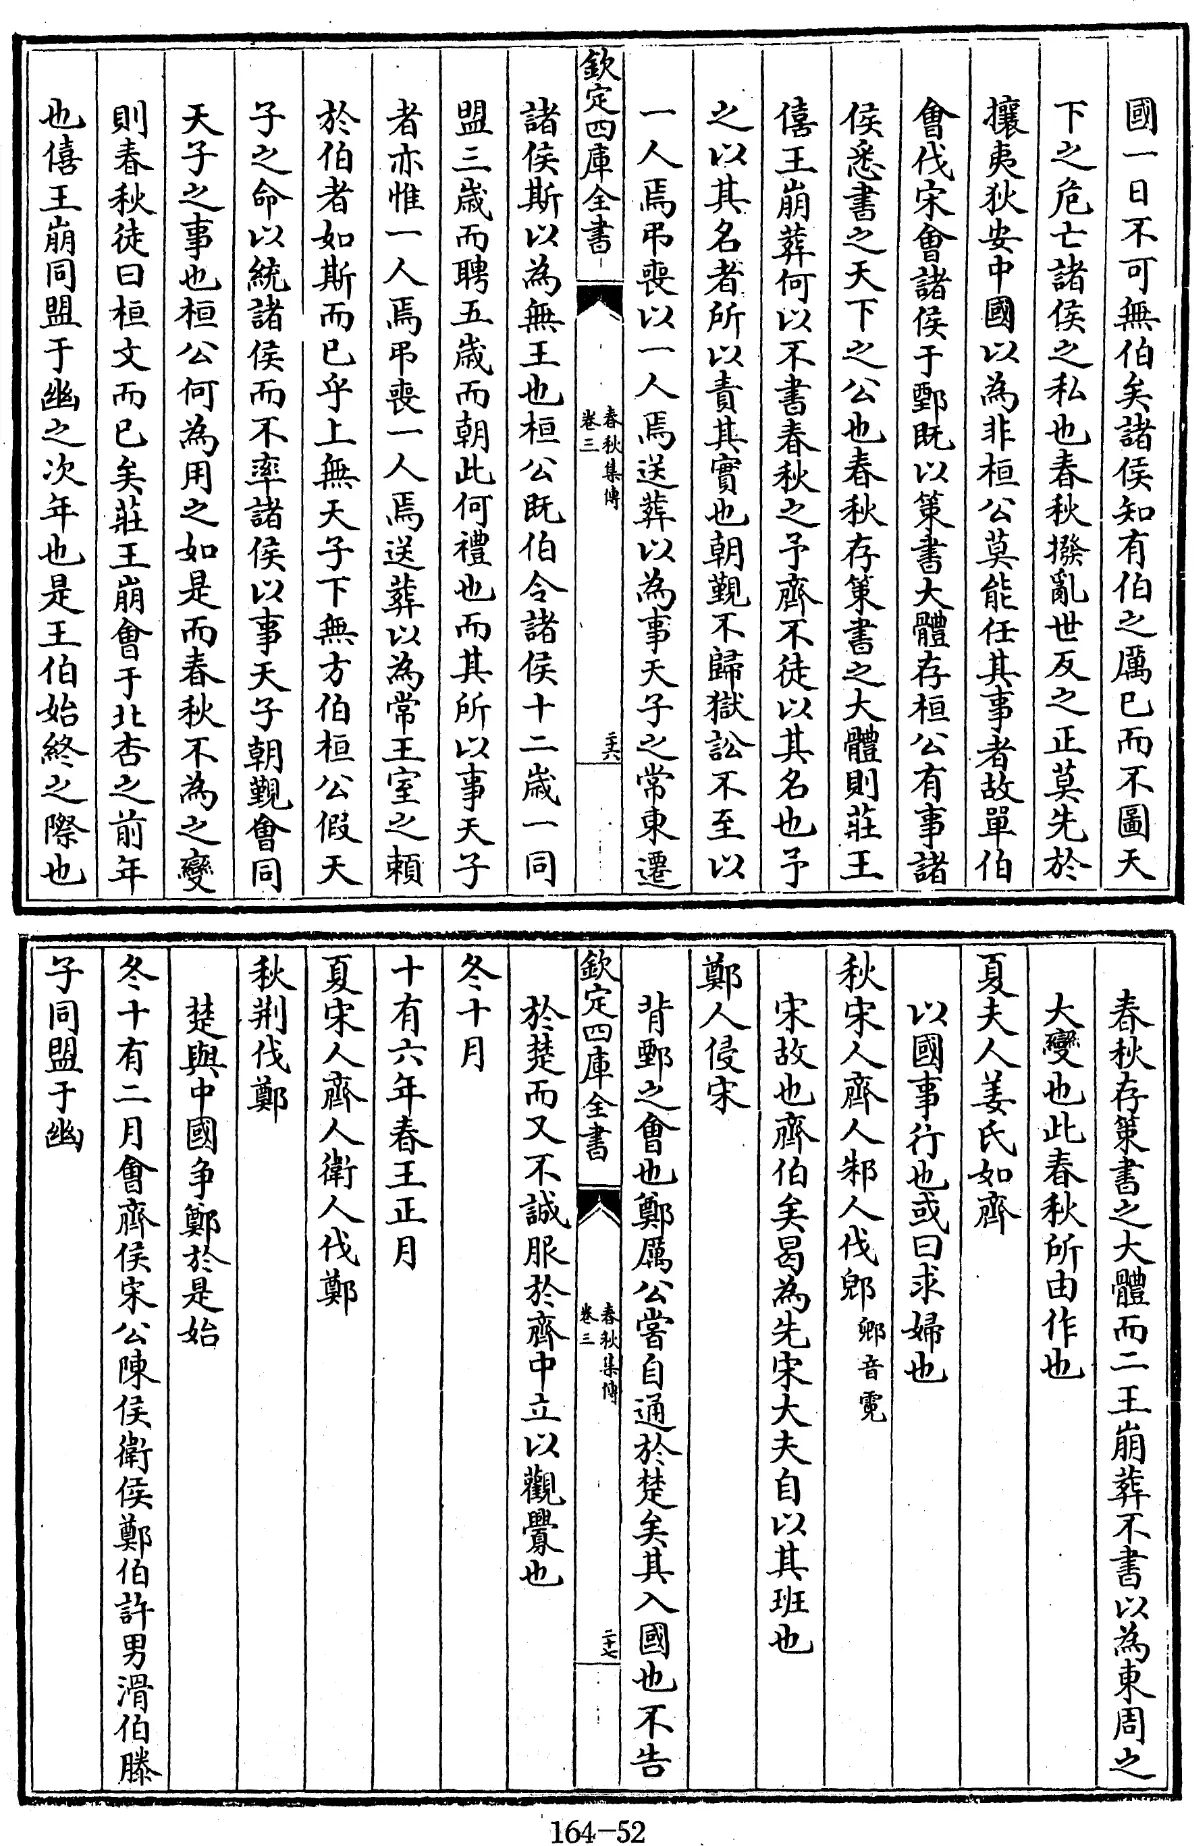 國一日不可無伯矣諸侯知有伯之厲已而不圖天
下之危亡諸侯之私也春秋撥亂世反之正莫先於
攘夷狄安中國以為非桓公莫能任其事者故單伯
會伐宋會諸侯于鄄既以策書大體存桓公有事諸
侯悉書之天下之公也春秋存策書之大體則莊王
僖王崩葬何以不書春秋之予齊不徒以其名也予
之以其名者所以責其實也朝覲不歸獄訟不至以
一人焉弔喪以一人焉送葬以為事天子之常東遷
欽定四庫全書
春秋集傳
卷三
二十六
諸侯斯以為無王也桓公既伯令諸侯十二歲一同
盟三歲而聘五歲而朝此何禮也而其所以事天子
者亦惟一人焉弔喪一人焉送葬以為常王室之賴
於伯者如斯而已乎上無天子下無方伯桓公假天
子之命以統諸侯而不率諸侯以事天子朝覲會同
天子之事也桓公何為用之如是而春秋不為之變
則春秋徒曰桓文而已矣莊王崩會于北杏之前年
也僖王崩同盟于幽之次年也是王伯始終之際也
春秋存策書之大體而二王崩葬不書以為東周之
大變也此春秋所由作也
夏夫人姜氏如齊
以國事行也或曰求婦也
秋宋人齊人邾人伐郳郷音霓
宋故也齊伯矣曷為先宋大夫自以其班也
鄭人侵宋
背鄄之會也鄭厲公嘗自通於楚矣其入國也不告
欽定四庫全書
春秋集傳
卷三
二十七
於楚而又不誠服於齊中立以觀釁也
冬十月
十有六年春王正月
夏宋人齊人衛人伐鄭
秋荆伐鄭
楚與中國争鄭於是始
冬十有二月會齊侯宋公陳侯衛侯鄭伯許男滑伯滕
子同盟于幽
164-52